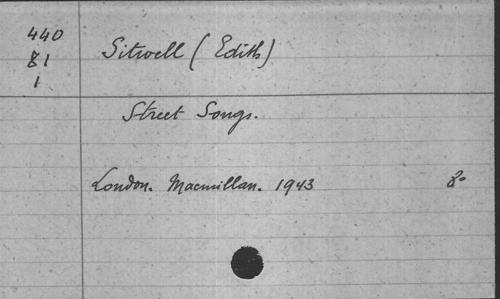 440
81
1
Sitwell (Edith)
Street Songs.
London. Macmillan. 1943 8°